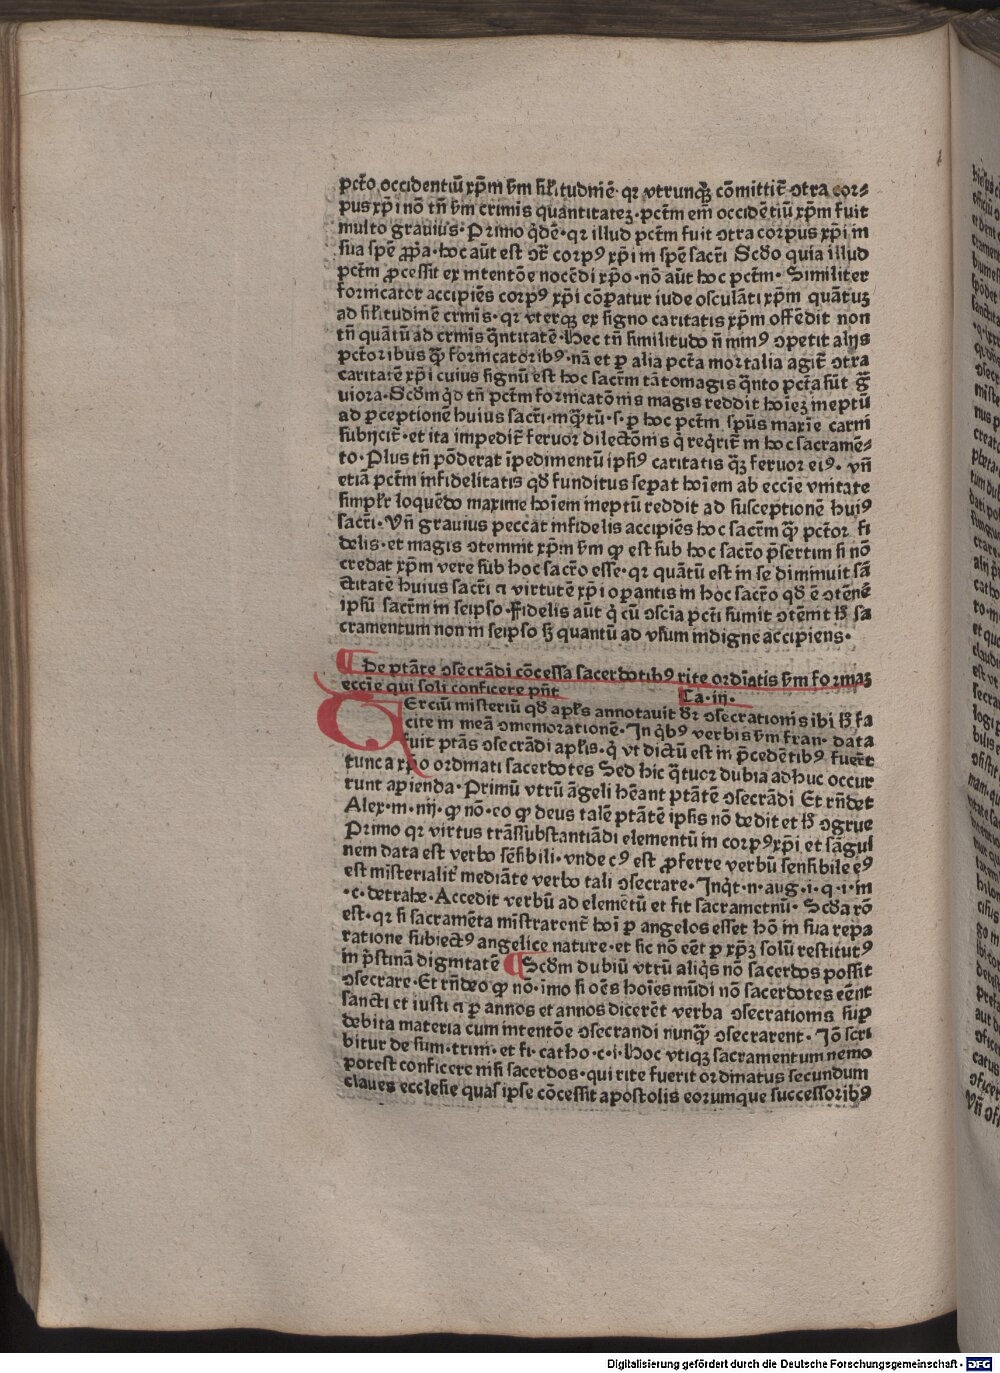 pctō occidentiū xp̄m s̄m sil̄itudinē· qr vtrunqꝫ cōmittit̄ ↄtra cor⸗
pus xp̄i nō tn̄ s̄m crimīs quantitateꝫ· pctm̄ em̄ occidētiū xp̄m fuit
multo grauius· Primo qͥdē· qr illud pctm̄ fuit ↄtra corpus xp̄i in
sua spē ꝓp̄a· hoc aūt est ↄt̄ corpꝰ xp̄i in spē sacrī Scd̄o quia illud
pctm̄ ꝓcessit ex intentōe nocēdi xp̄o· nō aūt hoc pctm̄· Similiter
fornicator accipiēs corpꝰ xp̄i cōꝑatur iude osculāti xp̄m quātuꝫ
ad sil̄itudinē crimīs· qr vterqꝫ ex signo caritatis xp̄m offēdit non
tn̄ quātū ad crimīs qͣntitatē· Hec tn̄ similitudo n̄ minꝰ ↄpetit alijs
pctōribus qͣꝫ fornicatoribꝰ· nā et ꝑ alia pctā mortalia agit̄ ↄtra
caritatē xp̄i cuius signū est hoc sacrm̄ tātomagis qͣnto pctā sūt gͣ
uiora· Scd̄m qͥd tn̄ pctm̄ fornicatōnis magis reddit hoīeꝫ ineptū
ad ꝑceptionē huius sacrī· inqͣꝫtū· s· ꝑ hoc pctm̄ spūs maxīe carni
subijcit̄· et ita impedit̄ feruor dilectōnis qͥ reqͥrit̄ in hoc sacramē⸗
to· Plus tn̄ pōderat īpedimentū ipsiꝰ caritatis qͣꝫ feruor eiꝰ· vn̄
etiā pctm̄ infidelitatis qd̄ funditus seꝑat hoīem ab eccīe vnitate
simpl̄r loquēdo maxime hoīem ineptū reddit ad susceptionē huiꝰ
sacrī· Vn̄ grauius peccat infidelis accipiēs hoc sacrm̄ qͣꝫ pctōr fi
delis· et magis ↄtemnit xp̄m s̄m ꝙ est sub hoc sacrō p̄sertim si nō
credat xp̄m vere sub hoc sacrō esse· qr quātū est in se diminuit sā
ctitatē huius sacrī ⁊ virtutē xp̄i oꝑantis in hoc sacrō qd̄ ē ↄtēnē
ipsū sacrm̄ in seipso· Fidelis aūt qͥ cū ↄscīa pctī sumit ↄtēmt h̄ sa
cramentum non in seipso sꝫ quantū ad vsum indigne accipiens·
¶ De ptāte ↄsecrādi cōcessa sacerdotibꝰ rite ordīatis s̄m formaꝫ
eccīe qui soli conficere pn̄t Ca· iij·
Erciū misteriū qd̄ apl̄s annotauit d̄r ↄsecrationis ibi h̄ fa
cite in meā ↄmemorationē· In qͥbꝰ verbis s̄m fran· data
fuit ptās ↄsecrādi apl̄is· qͥ vt dictū est in p̄cedētibꝰ fuer̄t
tunc a xp̄o ordinati sacerdotes Sed hic qͣtuor dubia adhuc occur
runt apienda· Primū vtrū āgeli hēant ptātē ↄsecrādi Et rn̄det
Alex· in· iiij· ꝙ nō· eo ꝙ deus talē ptātē ipsis nō dedit et h̄ ↄgrue
Primo qr virtus trāssubstantiādi elementū in corpꝰ xp̄i et sāgui
nem data est verbo sēsibili· vnde cꝰ est ꝓferre verbū sensibile eꝰ
est misterialit̄ mediāte verbo tali ↄsecrare· Inqͥt· n· aug· i· q· i· in
·c· detrahe· Accedit verbū ad elemētū et fit sacrametnū· Scd̄a rō
est· qr si sacramēta mīstrarent̄ hoī ꝑ angelos esset hō in sua repa
ratione subiectꝰ angelice nature· et sic nō eēt ꝑ xp̄ꝫ solū restitutꝰ
in p̄stinā dignitatē ¶ Scd̄m dubiū vtrū aliqͥs nō sacerdos possit
ↄsecrare· Et rn̄deo ꝙ nō· imo si oēs hoīes mūdi nō sacerdotes eēnt
sancti et iusti ⁊ ꝑ annos et annos dicerēt verba ↄsecrationis suꝑ
debita materia cum intentōe ↄsecrandi nunqͣꝫ ↄsecrarent· Iō scri
bitur de sum· trini· et fi· catho· c· i· Hoc vtiqꝫ sacramentum nemo
potest conficere nisi sacerdos· qui rite fuerit ordinatus secundum
claues ecclesie quas ipse cōcessit apostolis eorumque successoribꝰ
Digitalisierung gefördert durch die Deutsche Forschungsgemeinschaft - DFG